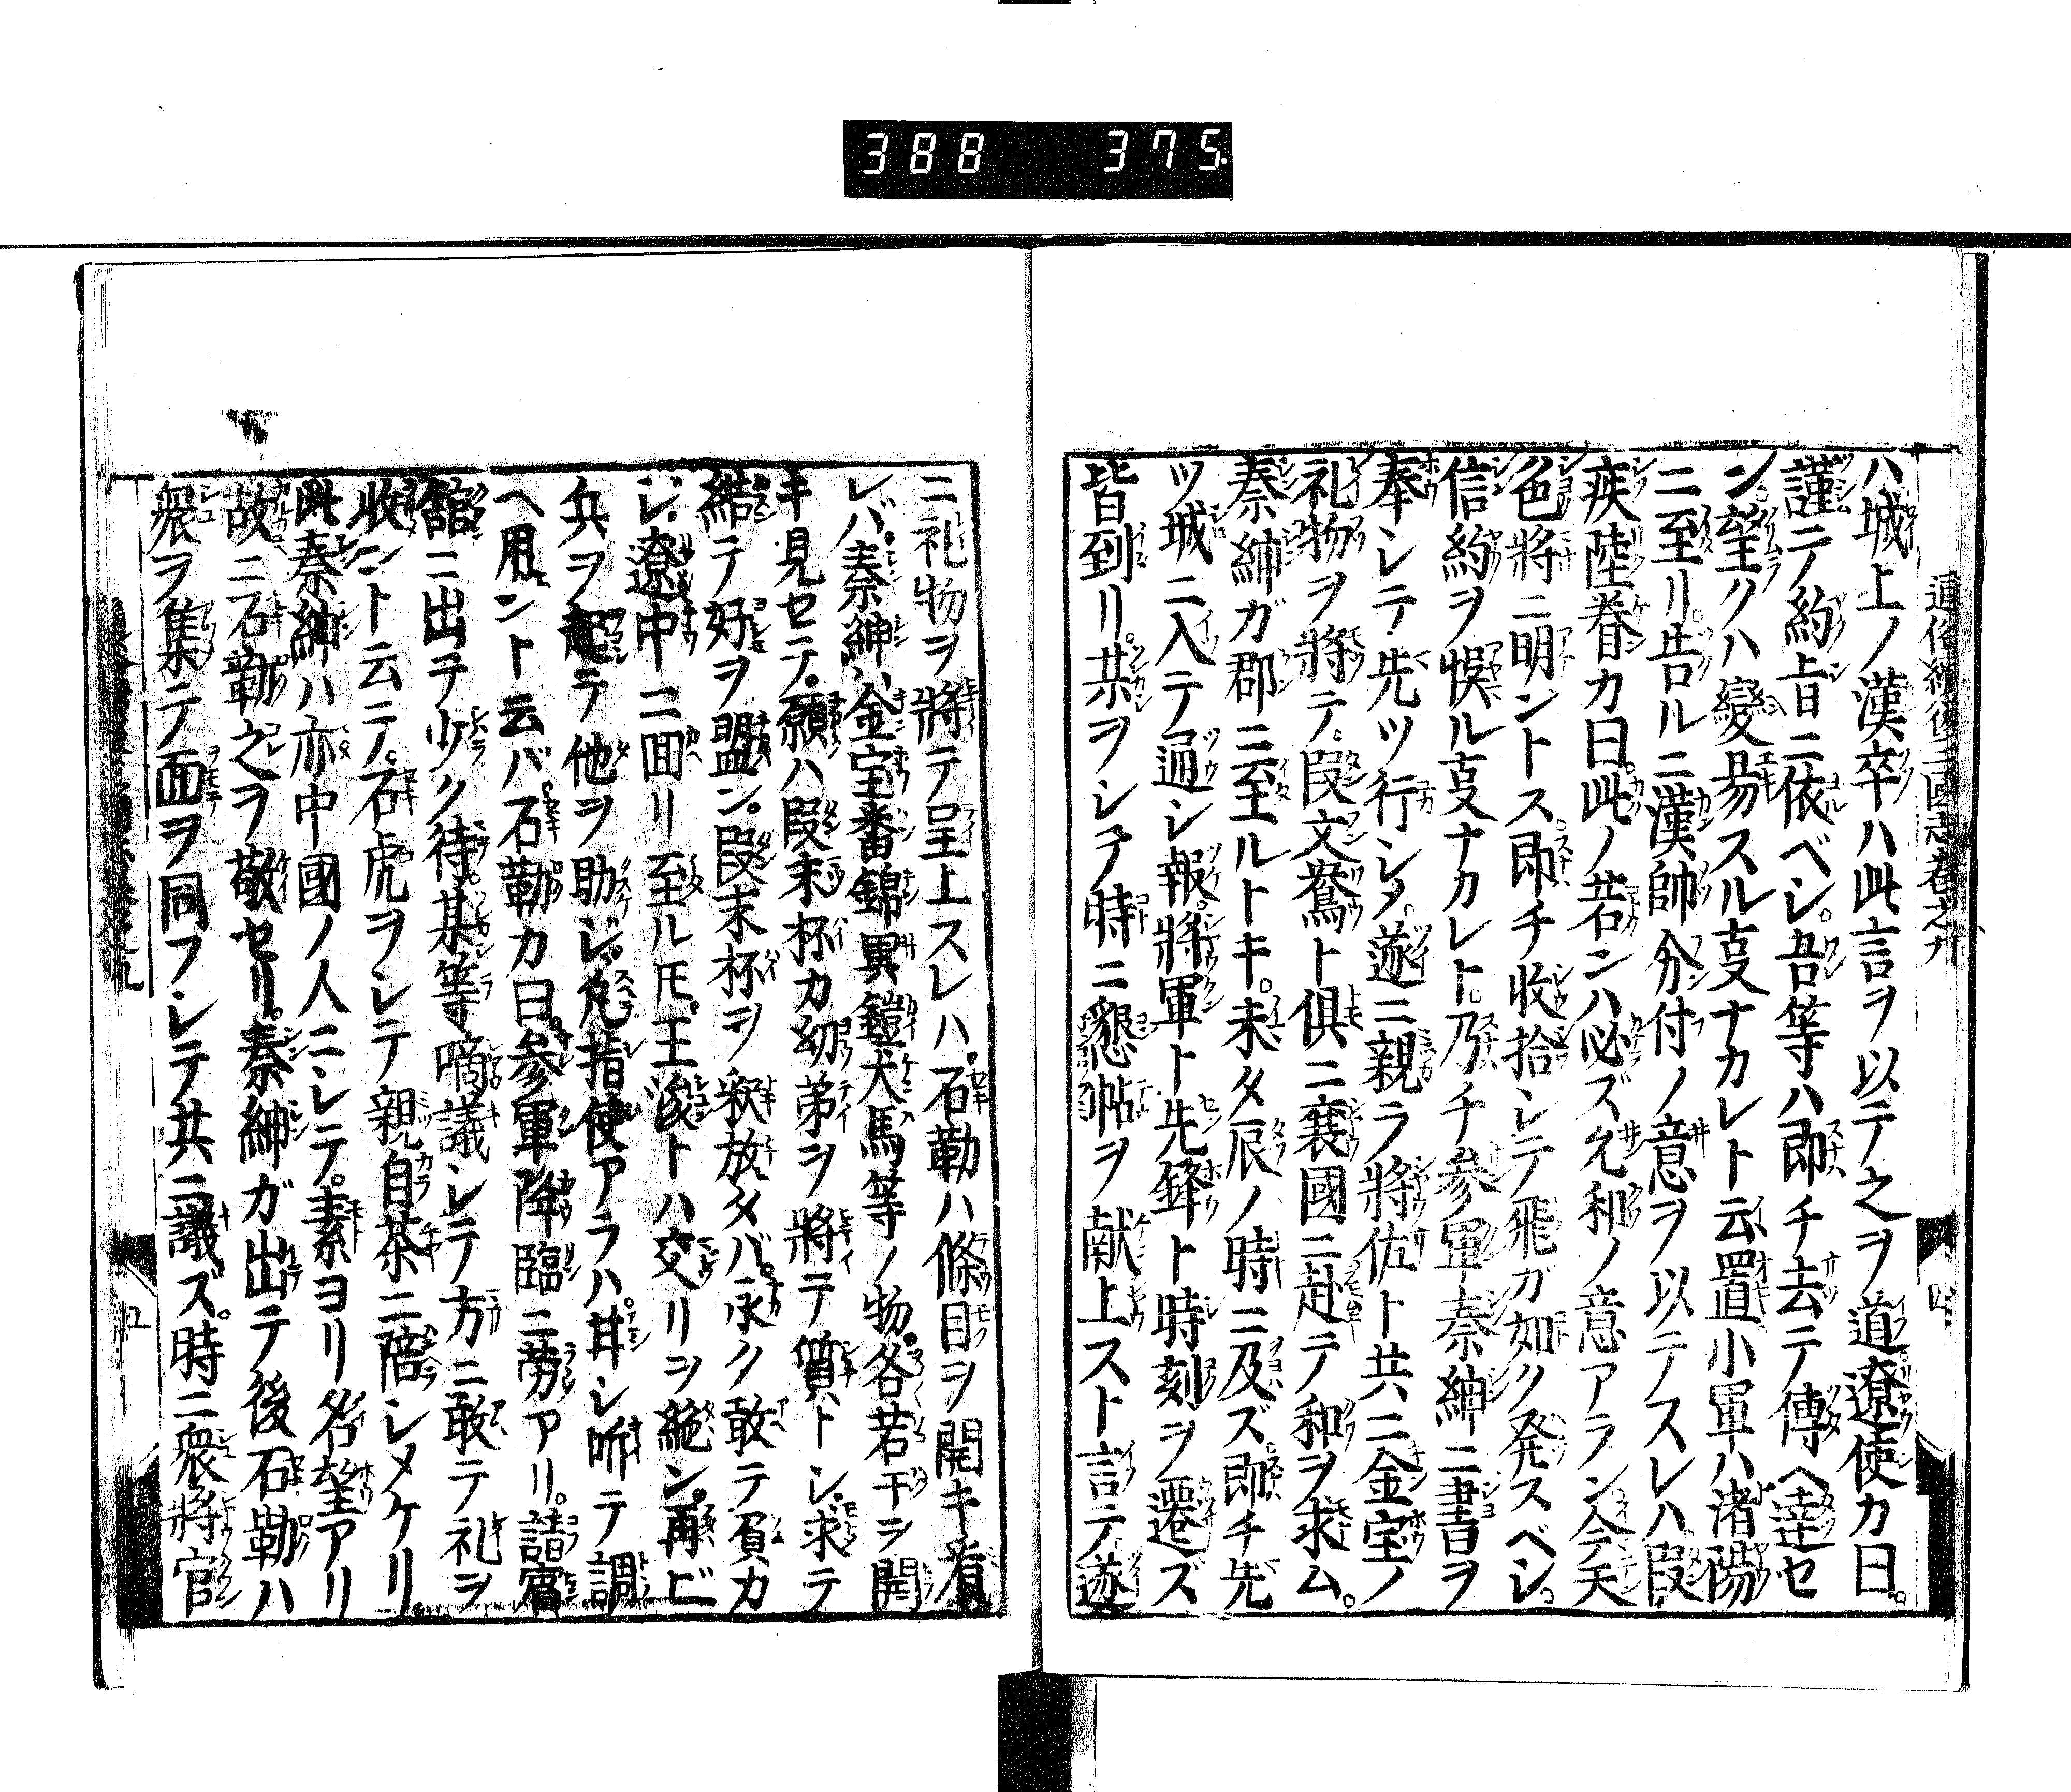 388 375
通俗續後三國志卷之九
ハ城上ノ漢卒ハ此言ヲ以テ之ヲ道遼使カ曰。
謹テ約旨ニ依ベシ。吾等ハ即チ去テ傳ヘ達セ
ン。望クハ變易スル叓ナカレト云置小軍ハ渚陽
ニ至リ。告ルニ漢帥分付ノ意ヲ以テスレハ段
疾陸眷カ曰。此ノ若ンハ必ズ允和ノ意アラン今天
色將ニ明ントス。即チ收拾シテ飛ガ如ク発スベシ。
信約ヲ悞ル叓ナカレト。乃チ参軍秦紳ニ書ヲ
奉シテ先ツ行シメ。遂ニ親ラ將佐ト共ニ金宝ノ
礼物ヲ將テ。段文鴦ト俱ニ襄國ニ赴テ和ヲ求ム。
秦紳ガ郡ニ至ルトキ。未タ辰ノ時ニ及ズ。即チ先
ツ城ニ入テ通シ報。將軍ト先鋒ト時刻ヲ遷ズ
皆到リ。某ヲシテ時ニ懇帖ヲ献上スト言テ遂
ニ礼物ヲ將テ呈上スレハ。石勒ハ條目ヲ開キ看
レバ。秦紳ハ金宝番錦異鎧犬馬等ノ物。各若干ヲ開
キ見セテ。願ハ段末杯カ幼弟ヲ將テ質トシ。求テ
結テ好ヲ盟ン。段末杯ヲ釈放タバ。永ク敢テ負カ
ジ。遼中ニ囬リ至ル𪜈。王浚トハ交リヲ絶ン。再ビ
兵ヲ起テ他ヲ助ジ。凢指使アラハ。幷シ听テ調
ヘ用ントト云バ。石勒カ曰。参軍降臨ニ労アリ。請賓
舘ニ出チ少ク待。某等啇議シテ方ニ敢テ礼ヲ
收ント云テ。石虎ヲシテ親自茶ニ陪シメケリ。
此秦紳ハ亦中國ノ人ニシテ。素ヨリ名望アリ
故ニ石勒之ヲ敬セリ。秦紳ガ出テ後石勒ハ
衆ヲ集テ面ヲ同フシテ共ニ議ズ。時ニ衆將官